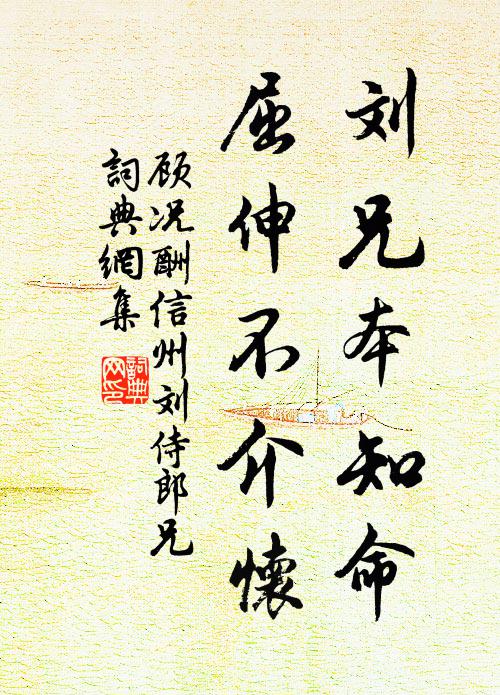 刘兄本知命
屈伸不介懷
顾况酬信州刘侍郎兄
詞典網集
詞典网印